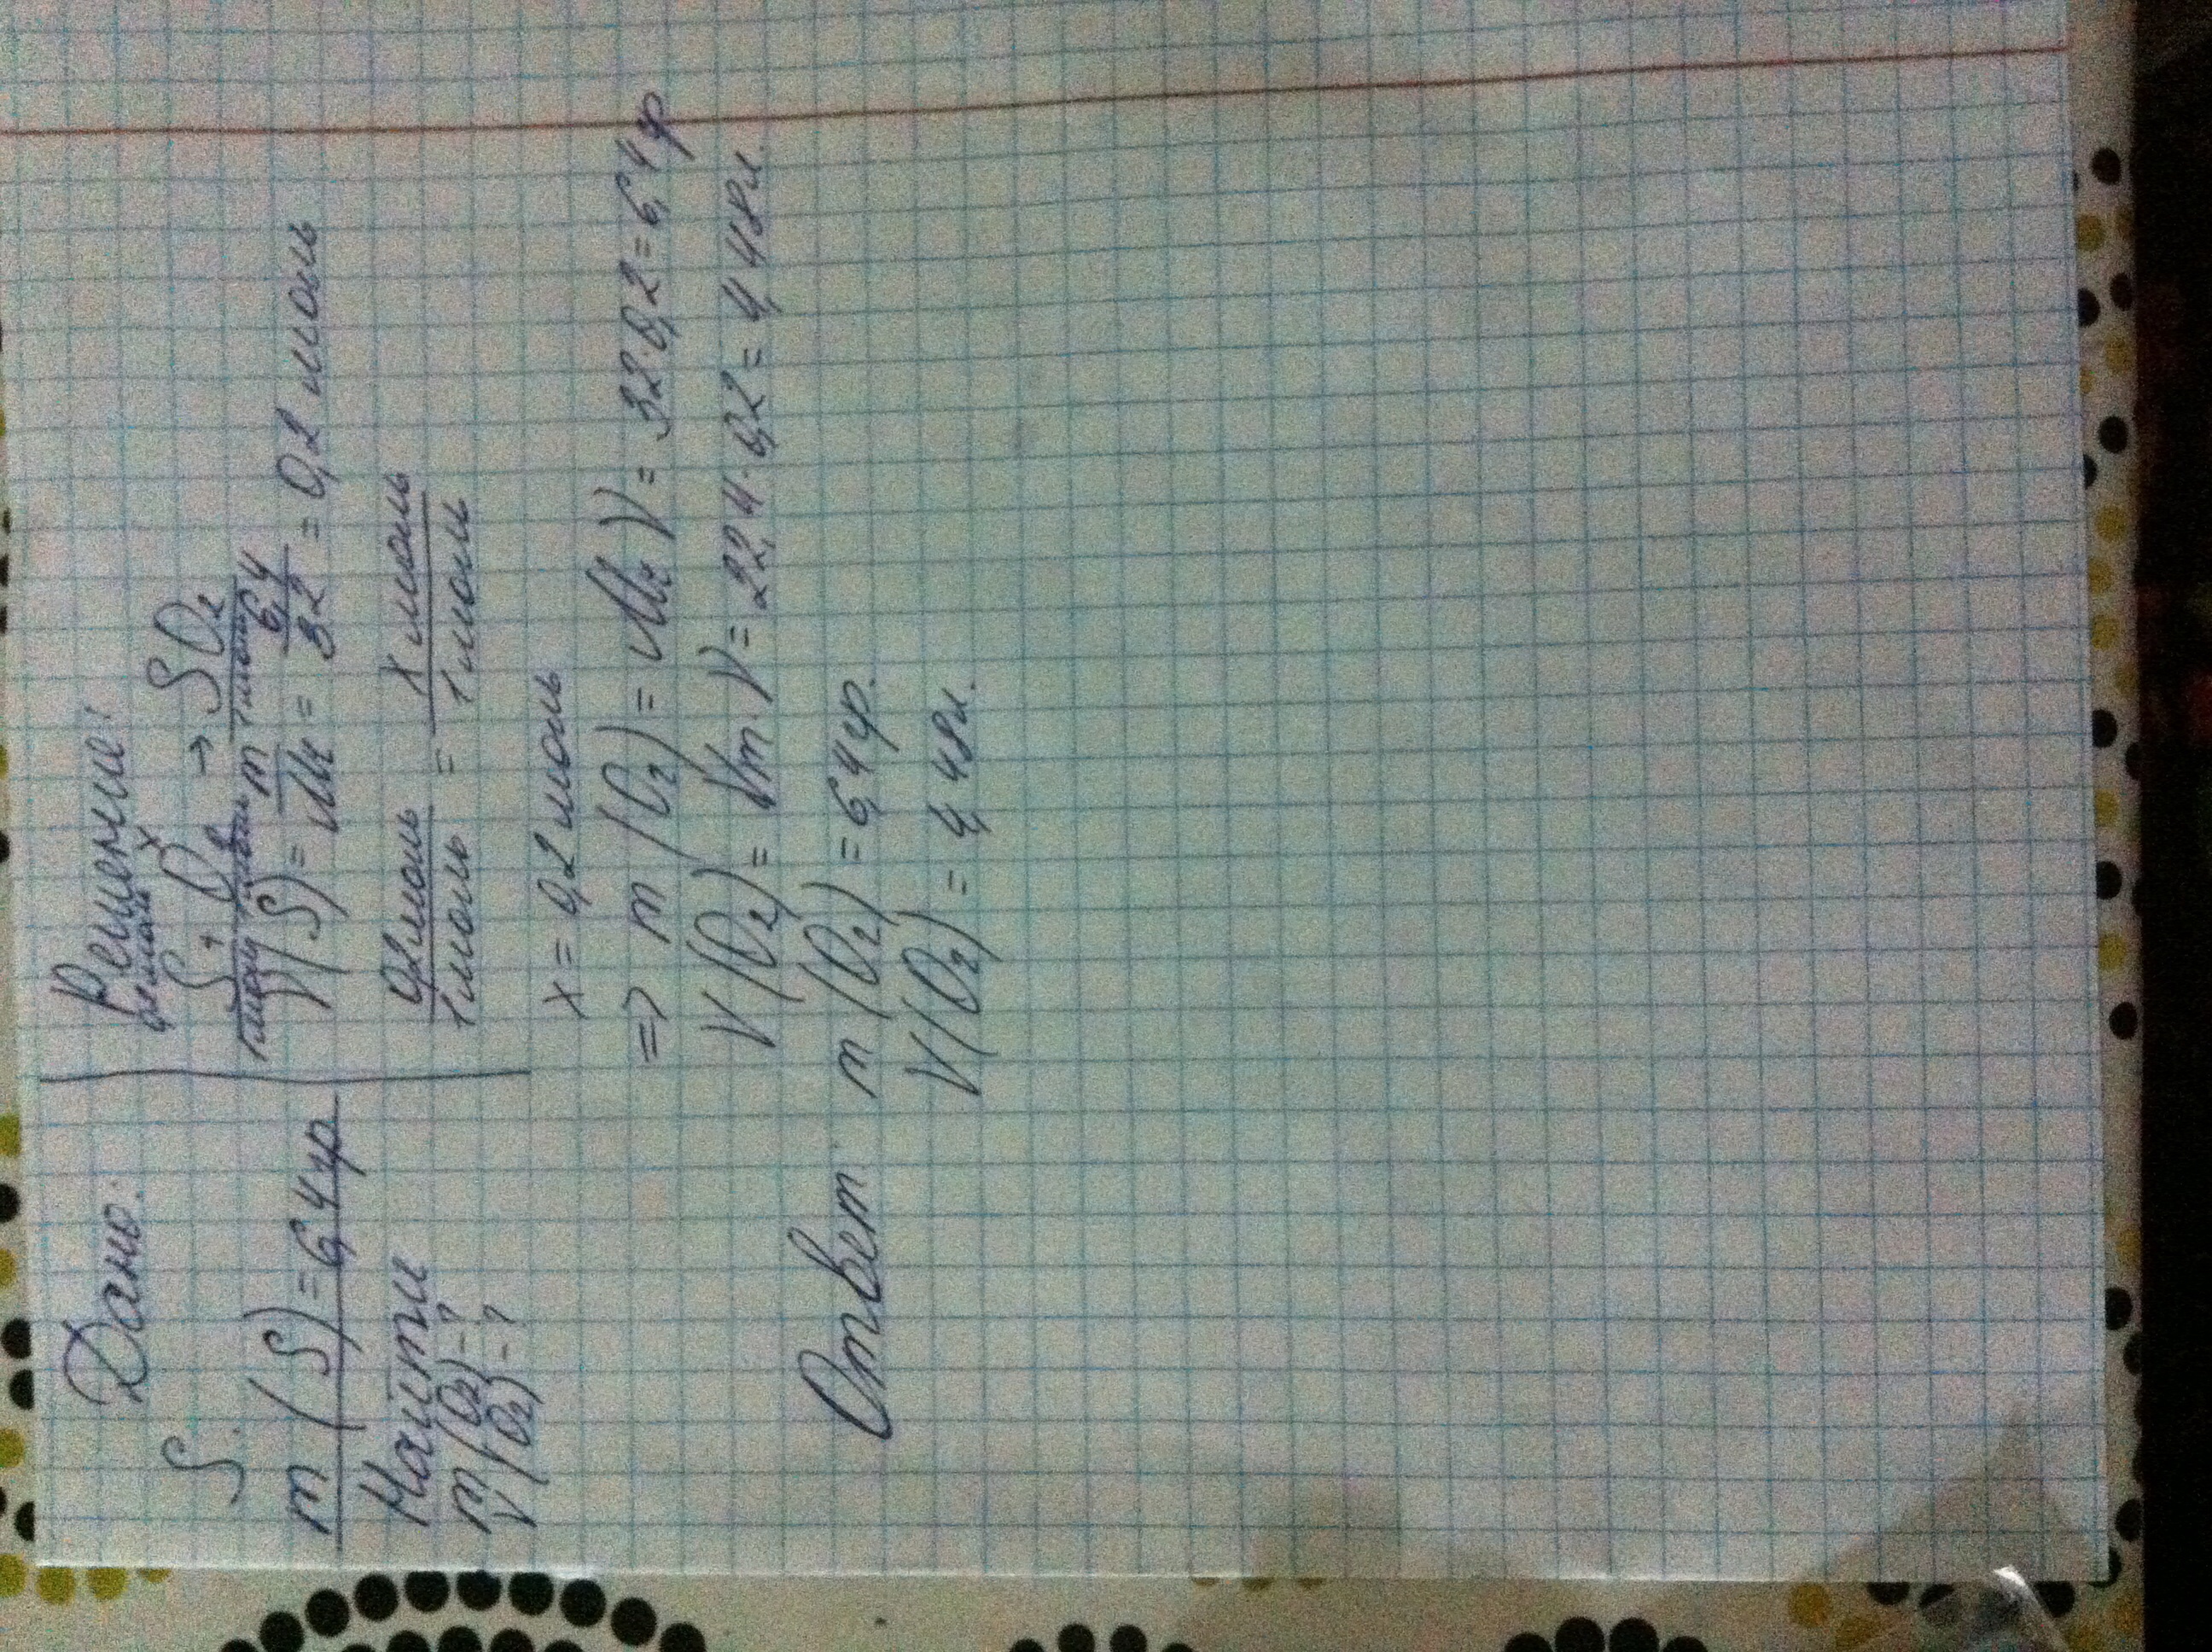 Дано:
S
m (S) = 6,4 гр
Найти
m (O₂) - ?
V (O₂) - ?
Решение:
0,2 моль x
S + O₂ → SO₂
1 моль 1 моль 1 моль
ν(S) = m/Mr = 6,4/32 = 0,2 моль
0,2 моль/1 моль = x моль/1 моль
x = 0,2 моль
=> m (O₂) = Mr ν = 32·0,2 = 6,4 гр
V (O₂) = Vm·ν = 22,4·0,2 = 4,48 л.
Ответ: m (O₂) = 6,4 гр.
V (O₂) = 4,48 л.